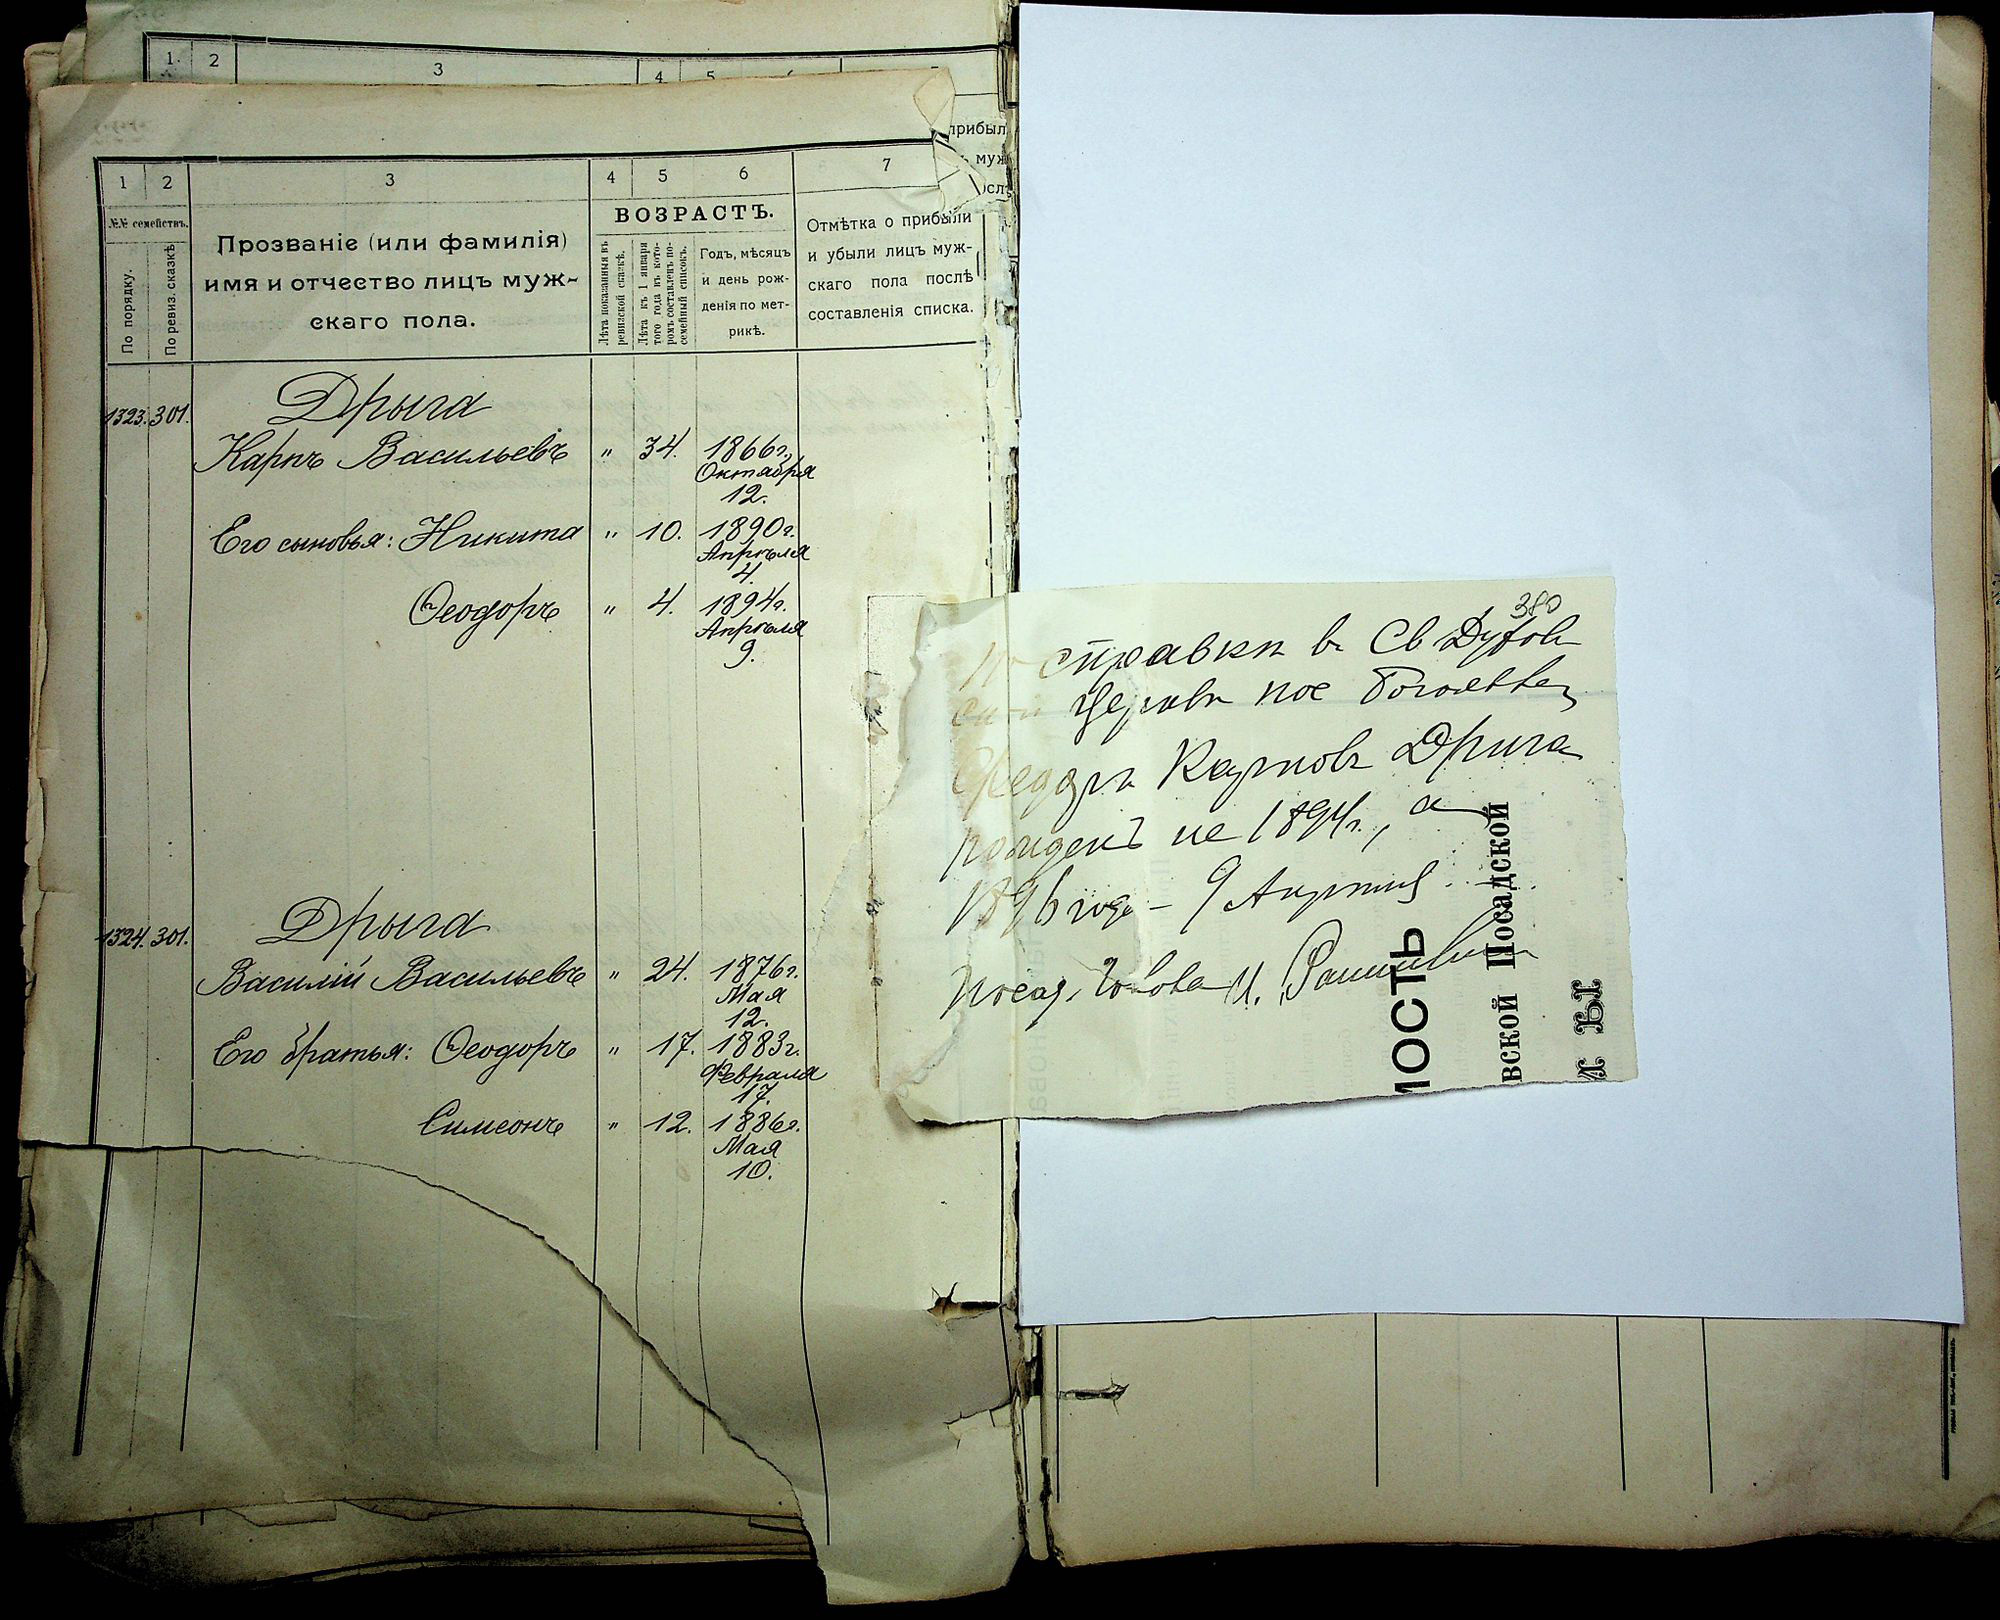 1. 2 3 4 5
прибыл
муж
1 2 3 4 5 6 7
№№ семействъ.
По порядку.
По ревиз. сказкѣ
Прозваніе (или фамилія)
имя и отчество лицъ муж-
скаго пола.
ВОЗРАСТЪ.
Лѣта показанныя въ
ревизской сказкѣ.
Лѣта къ 1 января
того года въ кото-
ромъ составленъ по-
семейный списокъ.
Годъ, мѣсяцъ
и день рож-
денія по мет-
рикѣ.
Отмѣтка о прибыли
и убыли лицъ муж-
скаго пола послѣ
составленія списка.
1323. 301. Дрыга
Карпъ Васильевъ " 34. 1866г.
Октября
12.
Его сыновья: Никита " 10. 1890г.
Апрѣля
4.
Ѳеодоръ " 4. 1894г.
Апрѣля
9.
1324. 301. Дрыга
Василій Васильевъ " 24. 1876г.
Мая
12.
Его братья: Ѳеодоръ " 17. 1883г.
Февраля
17.
Симеонъ " 12. 1886г.
Мая
10.
380
справки в Св Духов
церкви пос
Федоръ Карпов Дрига
рожденъ не 1894г., а
1896 года - 9 Апреля.
Посад. Голова И.
МОСТЬ
вской Посадской